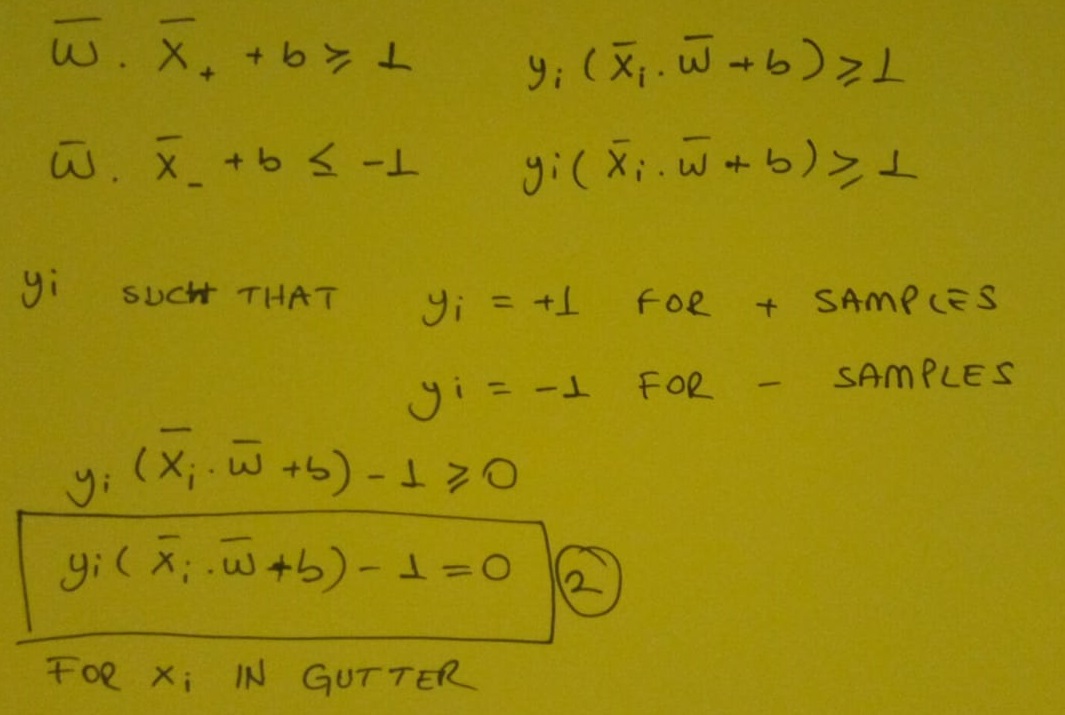 w̅ . x̅₊ + b ≥ 1    yᵢ (x̅ᵢ . w̅ + b) ≥ 1
w̅ . x̅₋ + b ≤ -1    yᵢ (x̅ᵢ . w̅ + b) ≥ 1
yᵢ SUCH THAT    yᵢ = +1 FOR + SAMPLES
yᵢ = -1 FOR - SAMPLES
yᵢ (x̅ᵢ . w̅ + b) - 1 ≥ 0
yᵢ (x̅ᵢ . w̅ + b) - 1 = 0    2
FOR xᵢ IN GUTTER